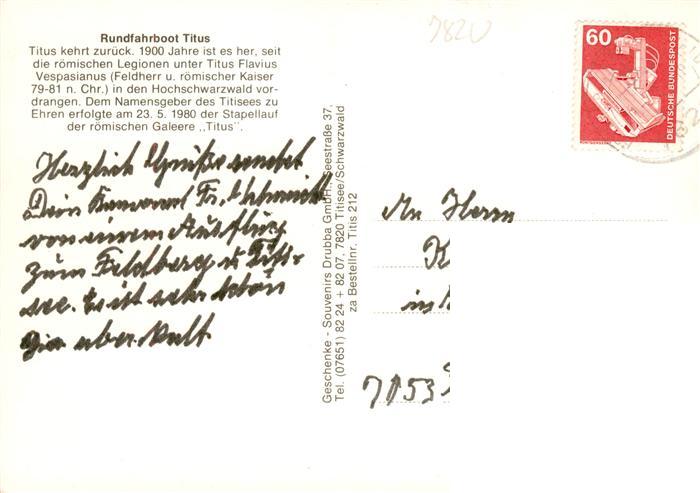 Rundfahrboot Titus
Titus kehrt zurück. 1900 Jahre ist es her, seit
die römischen Legionen unter Titus Flavius
Vespasianus (Feldherr u. römischer Kaiser
79-81 n. Chr.) in den Hochschwarzwald vor-
drangen. Dem Namensgeber des Titisees zu
Ehren erfolgte am 23. 5. 1980 der Stapellauf
der römischen Galeere ,,Titus".
Herzlich Grüße sendet
Dein Kamerad Fr. Schmidt
von einem Ausflug
zum Feldberg u. Titi-
see. Es ist sehr schön
hier aber kalt
Geschenke - Souvenirs Drubba GmbH., Seestraße 37,
Tel. (07651) 82 24 + 82 07, 7820 Titisee/Schwarzwald
za Bestellnr. Titis 212
7820
60
DEUTSCHE BUNDESPOST
An Herrn
K
in
7153